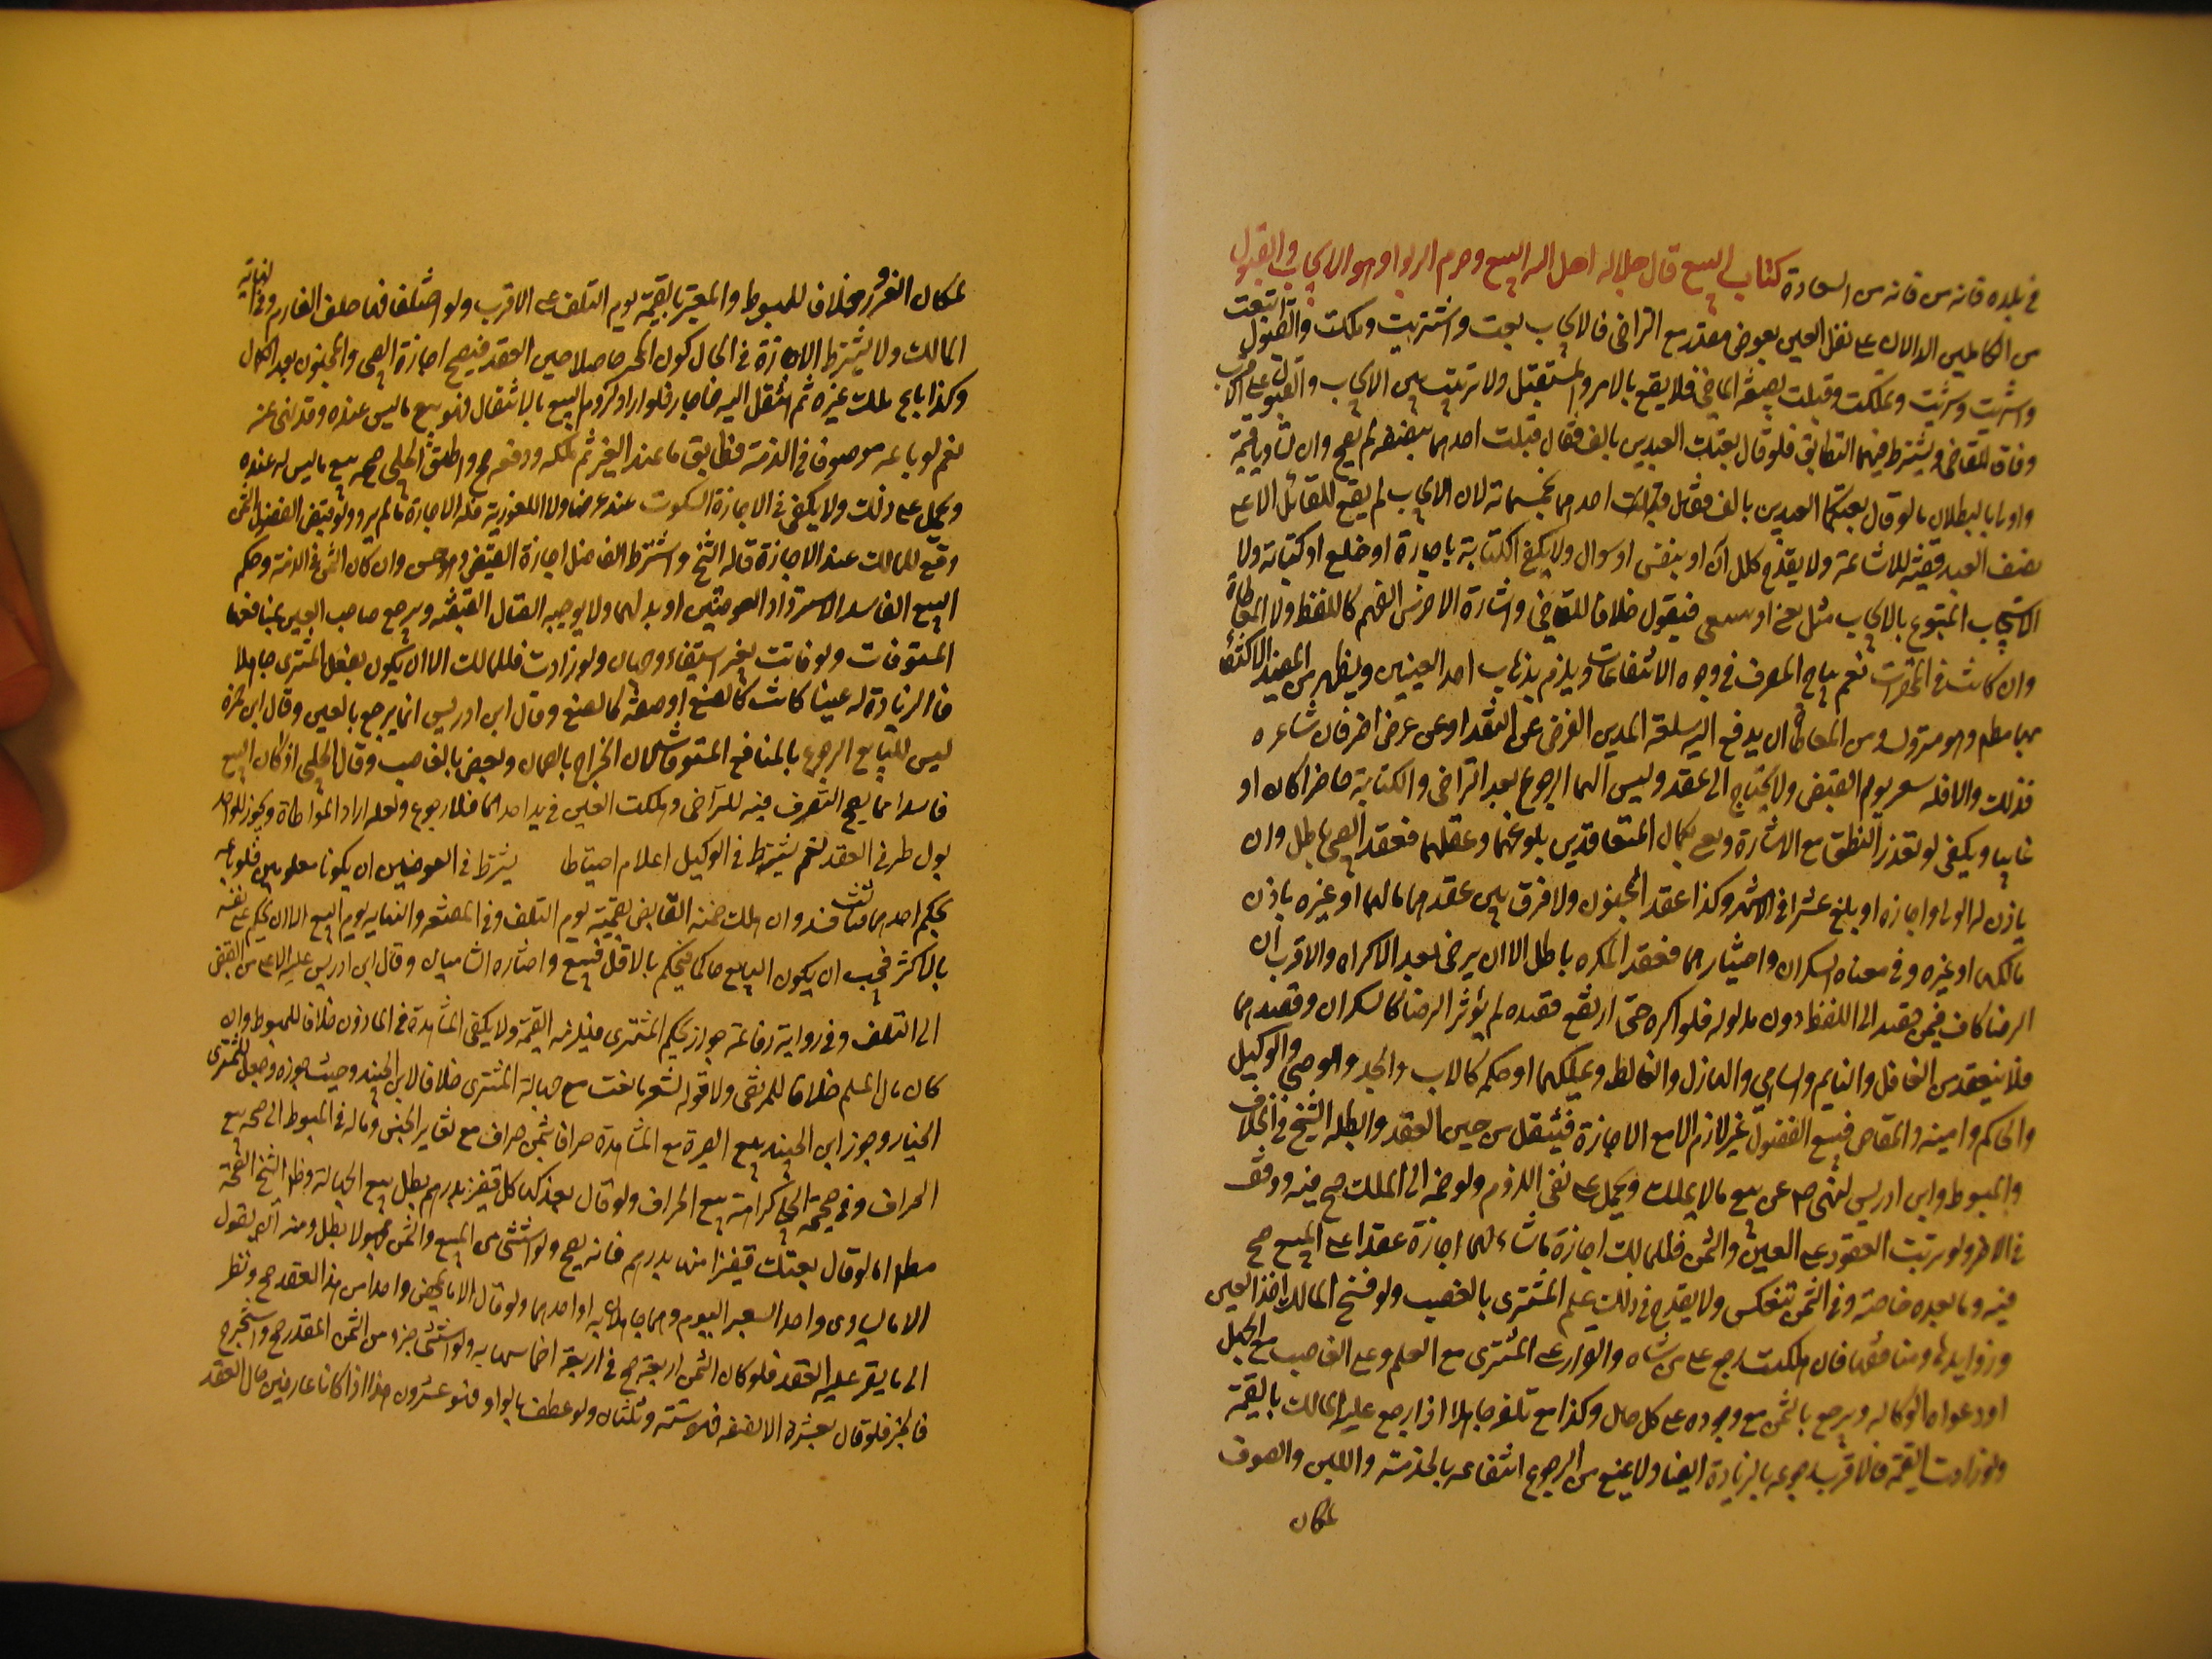 في بلده فانه من السعادة كتاب البيع قال جلاله احل الله البيع وحرم الربوا وهو الايجاب والقبول
من الكاملين الدالان على نقل العين بعوض مقدر مع التراضي فالايجاب بعت وشريت وملكت والقبول ابتعت
واشتريت وشريت وتملكت وقبلت بصيغة الماضي فلا يقع بالامر والمستقبل ولا ترتيب بين الايجاب والقبول على الاقرب
وفاقا للقاضي ويشترط فيهما التطابق فلو قال بعتك العبدين بالف فقال قبلت احدهما بنصفه لم يصح وان تساويا قيمة
واولى بالبطلان ما لو قال بعتكما العبدين بالف فقبل احدهما بخمسمائة لان الايجاب لم يقع للقائل الا على
نصف العبد قضية للاشاعة ولا يقدح تخلل آن او تنفس او سعال ولا يكفي الكتابة باجارة او خلع او كتابة ولا
الاستيجاب المتبوع بالايجاب مثل بعني او تبيعني فيقول خلافا للقاضي واشارة الاخرس المفهم كاللفظ ولا المعاطاة
وان كانت في المحقرات نعم يباح التصرف في وجوه الانتفاعات ويلزم بذهاب احد العينين ويظهر من المفيد الاكتفاء
بها مطلقا وهو متروك ومن المعاطاة ان يدفع اليه سلعة المدين الفرض عن النقد او عن عرض اخر فان شاعره
فذلك والا فله سعر يوم القبض ولا يحتاج الى عقد وليس لهما الرجوع بعد التراضي والكتابة حاضرا كان او
غايبا ويكفي لو تعذر النطق مع الاشارة ومع كمال المتعاقدين بلوغهما وعقلهما فعقد الصبي باطل وان
ياذن له الولي او اجازه او بلغ عشرا في الاشهر وكذا عقد المجنون ولا فرق بين عقدهما بمالهما او غيره باذن
مالكه او غيره وفي معناه السكران واختيارهما فعقد المكره باطل الا ان يرضى بعد الاكراه والاقرب ان
الرضا كاف فيمن قصد الى اللفظ دون مدلوله فلو اكره حتى ارتفع قصده لم يؤثر الرضا كالسكران وقصدهما
فلا ينعقد من الغافل والنايم والساهي والهازل والغالط وتملكهما او حكمه كالاب والجد والوصي والوكيل
والحاكم وامينه والمقاص فبيع الفضولي غير لازم الا مع الاجازة فينتقل من حين العقد وابطله الشيخ في الخلاف
والمبسوط وابن ادريس لنهي ص عن بيع ما لا يملك ويحمل على نفي اللزوم ولو ضمه الى الملك صح فيه ووقف
في الاخر ولو ترتبت العقود على العين والثمن فللمالك اجازة ما شاء ومهما اجازة عقدا على المبيع صح
فيه وما بعده خاصة وفي الثمن ينعكس ولا يقدح في ذلك علم المشتري بالغصب ولو فسخ المالك اخذ العين
وزوايدها ومنافعها فان هلكت رجع على من شاء والقرار على المشتري مع العلم وعلى الغاصب مع الجهل
او دعواه الوكالة ويرجع بالثمن مع وجوده على كل حال وكذا مع تلفه جاهلا اذا رجع عليه المالك بالقيمة
ولو زادت القيمة فالاقرب رجوعه بالزيادة ايضا ولا يمنع من الرجوع انتفاعه بالخدمة واللبن والصوف
لمكان
لمكان الغرور خلافا للمبسوط والمعتبر بالقيمة يوم التلف على الاقرب ولو اختلفا فيها حلف الغارم وفي النهاية
المالك ولا يشترط الاجازة في الحال كون المجيز حاصلا حين العقد فيصح اجازة الصبي والمجنون بعد الكمال
وكذا بايع ملك غيره ثم انتقل اليه فاجاز فلو اراد لزوم البيع بالانتقال فهو بيع ما ليس عنده وقد نهى عنه
نعم لو باعه موصوفا في الذمة فطابق ما عند الغير ثم ملكه ودفعه صح واطلق الحلي صحة بيع ما ليس له عنده
ويحمل على ذلك ولا يكفي في الاجازة السكوت عند عرضها ولا اللفورية فله الاجازة ما لم يرد ولو قبض الفضولي الثمن
وقع للمالك عند الاجازة قاله الشيخ واشترط الفاضل اجازة القبض وهو حسن وان كان الثمن في الذمة وحكم
البيع الفاسد الاسترداد العوضين او بدلهما ولا يوجبه اتصال القبض به ويرجع صاحب العين بمنافعها
المستوفات ولو فاتت بغير استيفاء وجهان ولو زادت فللمالك الا ان يكون بفعل المشتري جاهلا
فالزيادة له عينا كانت كالصبغ او صفة كالصنع وقال ابن ادريس انما يرجع بالعين وقال ابن حمزة
ليس للبايع الرجوع بالمنافع المستوفاة لان الخراج بالضمان ونخص بالغاصب وقال الحلبي اذا كان البيع
فاسدا مما يصح التصرف فيه للتراضي وهلكت العين في يد احدهما فلا رجوع ولعله اراد المعاطاة ويجوز للواحد
تولي طرفي العقد نعم يشترط في الوكيل اعلام احتياطا يشترط في العوضين ان يكونا معلومين فلو باعه
بحكم احدهما او ثالث فسد وان هلك ضمنه القابض بقيمته يوم التلف وفي المقنعة والنهاية يوم البيع الا ان يحكم على نفسه
بالاكثر فيجب ان يكون البايع حاكما فيحكم بالاقل فيتبع واختاره الشاميان وقال ابن ادريس عليه الاعلى من القبض
الى التلف وفي رواية رفاعة جواز تحكيم المشتري فيلزمه القيمة ولا يكفي المشاهدة في الموزون خلافا للمبسوط وان
كان مال السلم خلافا للمرتضى ولا قوله بسعر ما بعت مع جهالة المشتري خلافا لابن الجنيد وحيث جوزه وجعل للمشتري
الخيار وجوز ابن الجنيد بيع الصبرة مع المشاهدة جزافا بثمن جزاف مع تغاير الجنس وماله في المبسوط الى صحة بيع
الجزاف وفي صحيحة الحلبي كراهة بيع الجزاف ولو قال بعتكها كل قفيز بدرهم بطل بيع الجهالة وظاهر الشيخ الصحة
مطلقا اما لو قال بعتك قفيزا منها بدرهم فانه يصح ولو استثنى من المبيع والثمن مجهولا بطل ومنه ان يقول
الا ما يساوي واحدا بسعر اليوم وهما جاهلان به او احدهما ولو قال الا ما يخص واحدا من هذا العقد صح ونظر
الى ما يقر عليه العقد فلو كان الثمن اربعة صح في اربعة اخماسها به ولو استثنى جزءا من الثمن المقدر صح واستخرج
بالجبر فلو قال بعشرة الا نصفه فله ستة وثلثان ولو عطف بالواو فهو عشرون هذا اذا كانا عارفين حال العقد